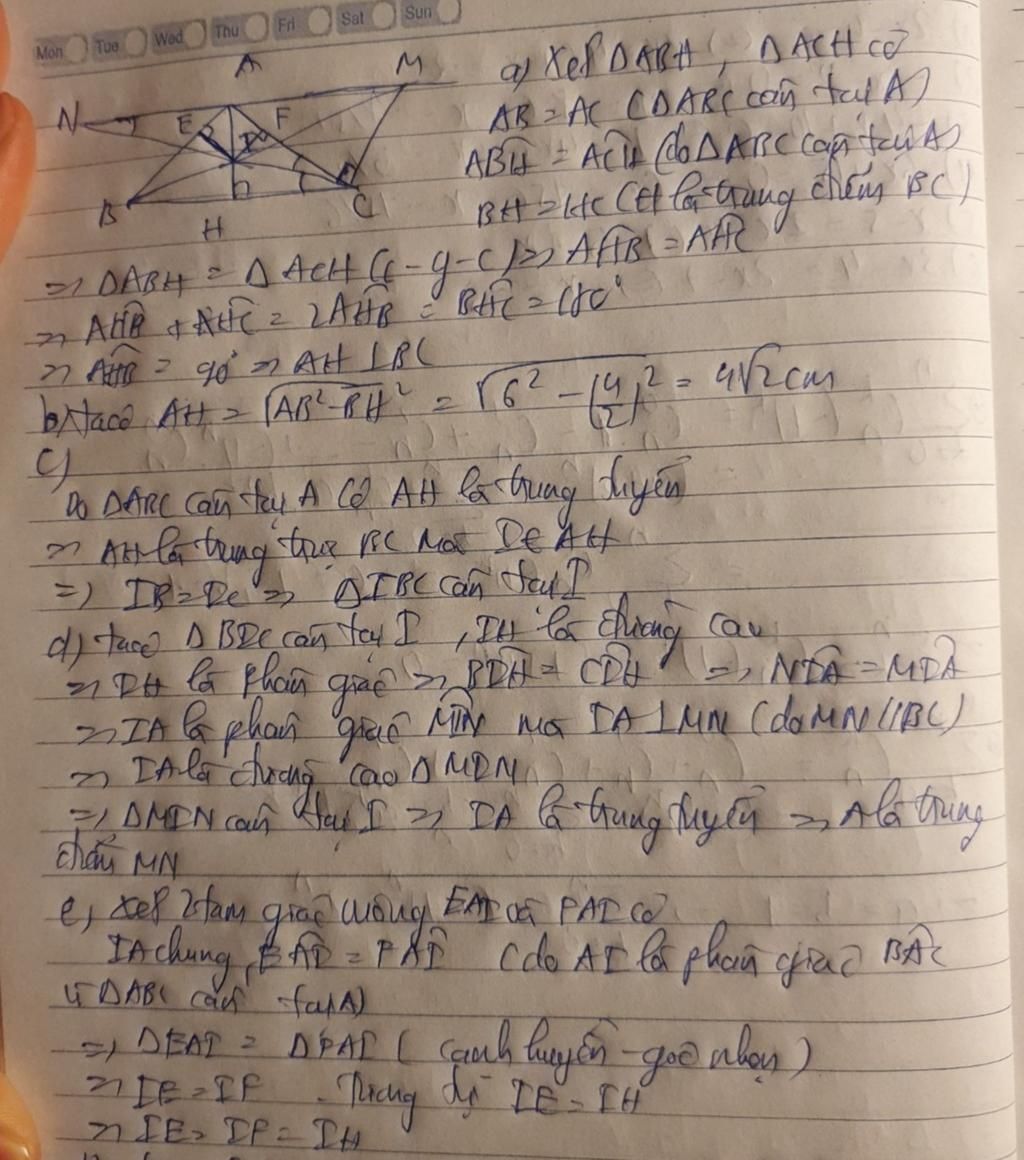 Mon Tue Wed Thu Fri Sat Sun
A M
N E F I
B H C
a) Xét ΔABH, ΔACH có
AB = AC (ΔABC cân tại A)
ABH = ACH (do ΔABC cân tại A)
BH = HC (H là trung điểm BC)
=> ΔABH = ΔACH (c-g-c) => AHB = AHC
=> AHB + AHC = 2AHB = BHC = 180°
=> AHB = 90° => AH ⊥ BC
b) ta có AH = √AB² - BH² = √6² - (4/2)² = 4√2 cm
c)
Do ΔABC cân tại A có AH là trung tuyến
=> AH là trung trực BC mà I ∈ AH
=> IB = IC => ΔIBC cân tại I
d) ta có ΔBIC cân tại I, IH là đường cao
=> IH là phân giác => BIH = CIH => NIA = MIA
=> IA là phân giác MIN mà IA ⊥ MN (do MN // BC)
=> IA là đường cao ΔMIN
=> ΔMIN cân tại I => IA là trung tuyến => A là trung
điểm MN
e) Xét 2 tam giác vuông EAI và FAI có
IA chung, EAI = FAI (do AI là phân giác BAC
ΔABC cân tại A)
=> ΔEAI = ΔFAI (cạnh huyền - góc nhọn)
=> IE = IF. Tương tự IE = IH
=> IE = IF = IH